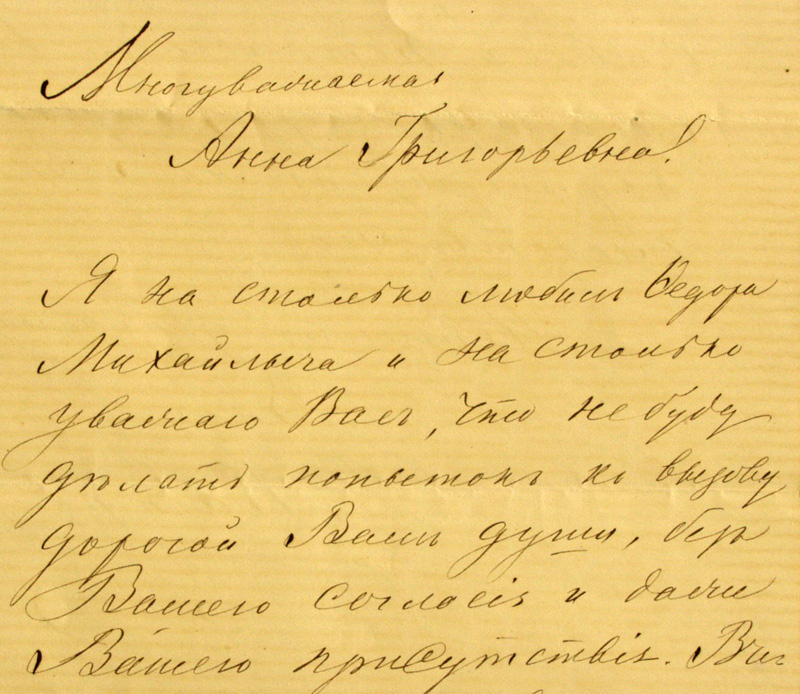 Многуважаемая
Анна Григорьевна!
Я на столько любилъ Ѳедора
Михайлыча и на столько
уважаю Васъ, что не буду
дѣлать попытокъ къ вызову
дорогой Вамъ души, безъ
Вашего согласія и даже
Вашего присутствія.